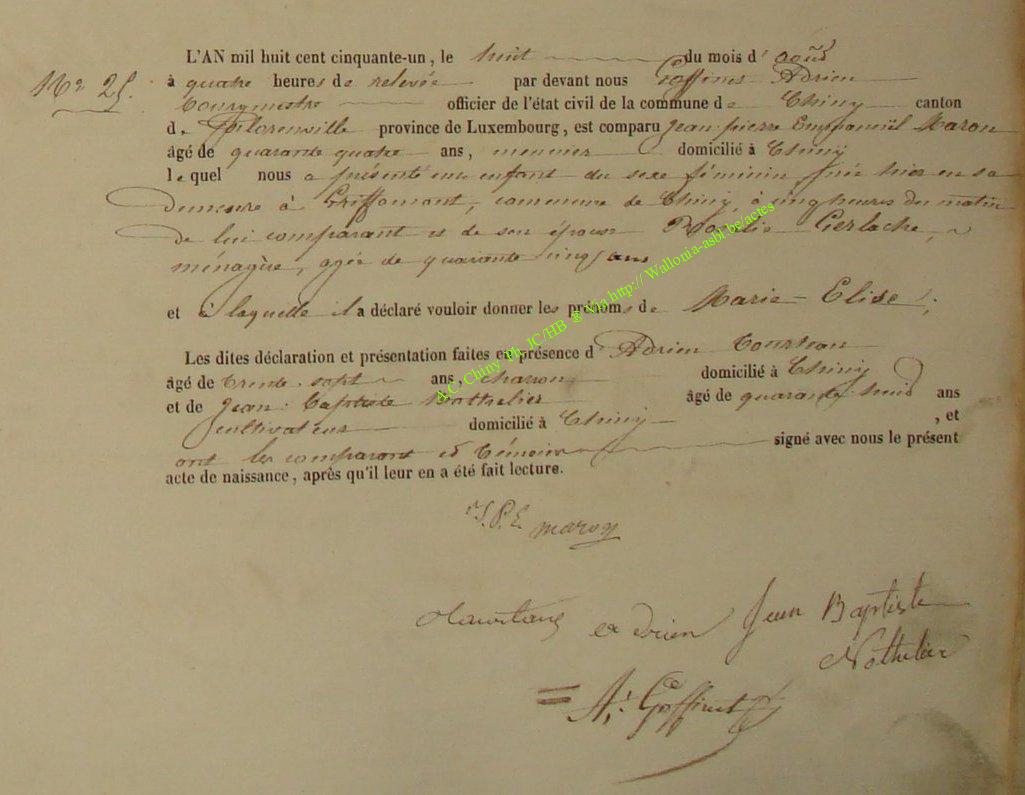 L'AN mil huit cent cinquante-un, le huit du mois d' août
Nº 25. à quatre heures de relevée par devant nous Goffinet Adrien
bourgmestre officier de l'état civil de la commune de Chiny canton
de Florenville province de Luxembourg, est comparu Jean pierre Emmanuël Maron
âgé de quarante quatre ans, meunier domicilié à Chiny
lequel nous a présenté un enfant du sexe féminin, née hier en sa
demeure à Griffomont, commune de Chiny, à cinq heures du matin
de lui comparant et de son épouse Rosalie Gerlache,
ménagère, agée de quarante cinq ans
et à laquelle il a déclaré vouloir donner les prénoms de Marie-Elise;
Les dites déclaration et présentation faites en présence d' Adrien
âgé de trente-sept ans, charron domicilié à Chiny
et de Jean Baptiste Nothelier âgé de quarante huit ans
cultivateur domicilié à Chiny, et
ont les comparant et témoins signé avec nous le présent
acte de naissance, après qu'il leur en a été fait lecture.
A.C. Chiny Ph. JC/HB ® Via http:// Wallonia-asbl be/actes
J.P.E maron
adrien Jean Baptiste
Nothelier
A. Goffinet